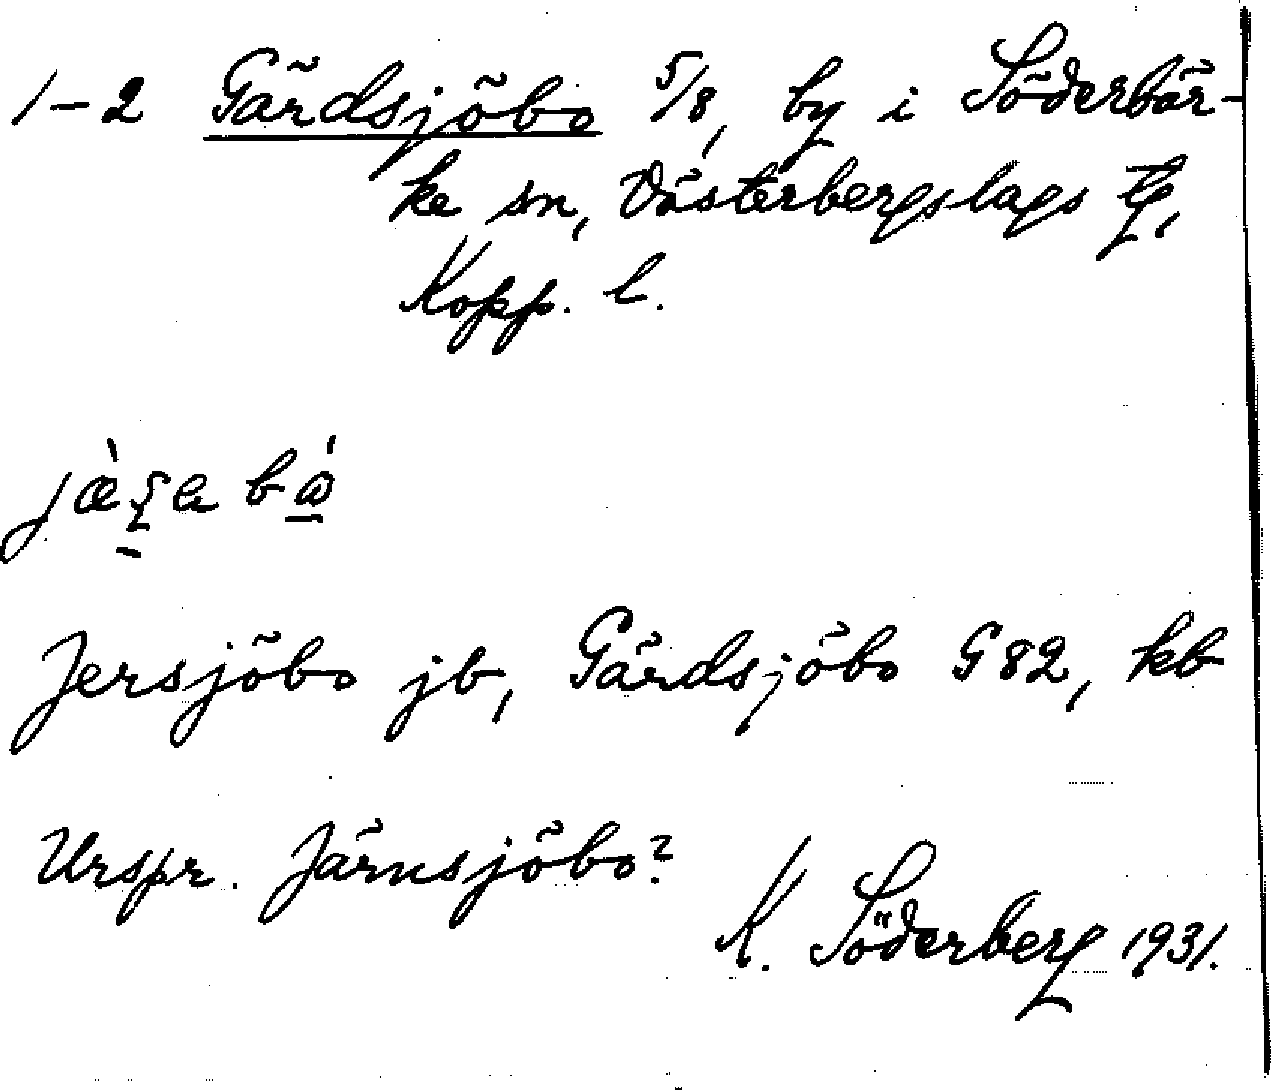 1-2 Gärdsjöbo 5/8, by i Söderbär-
ke sn, Västerbergslags tg,
Kopp. l.
Jersjöbo jb, Gärdsjöbo G82, kb
Urspr. Järnsjöbo?
K. Söderberg 1931.